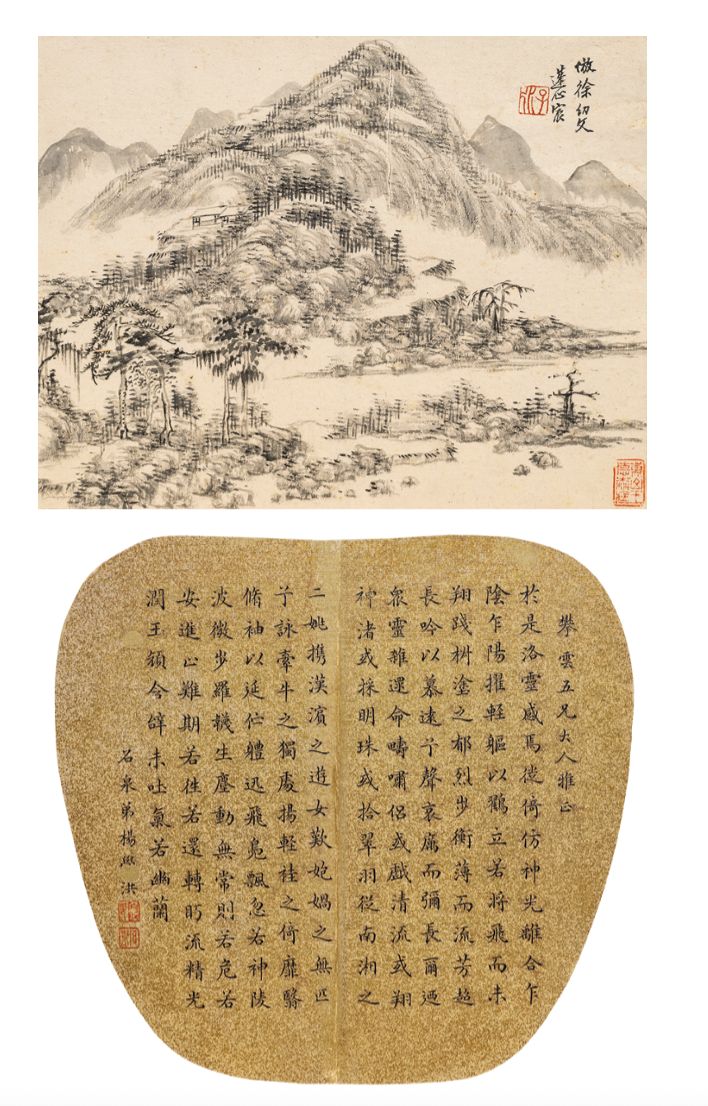 倣徐幼文
蓬心宸
攀雲五兄大人雅正
於是洛靈感焉徙倚仿神光離合乍
陰乍陽擢輕軀以鶴立若將飛而未
翔踐椒塗之郁烈步衡薄而流芳超
長吟以慕遠兮聲哀厲而彌長爾迺
衆靈雜遝命疇嘯侶或戲清流或翔
神渚或採明珠或拾翠羽從南湘之
二姚攜漢濱之遊女歎匏媧之無匹
兮詠牽牛之獨處揚輕袿之倚靡翳
脩袖以延佇體迅飛鳧飄忽若神陵
波微步羅韈生塵動無常則若危若
安進止難期若往若還轉眄流精光
潤玉顏含辭未吐氣若幽蘭
石泉弟楊洪